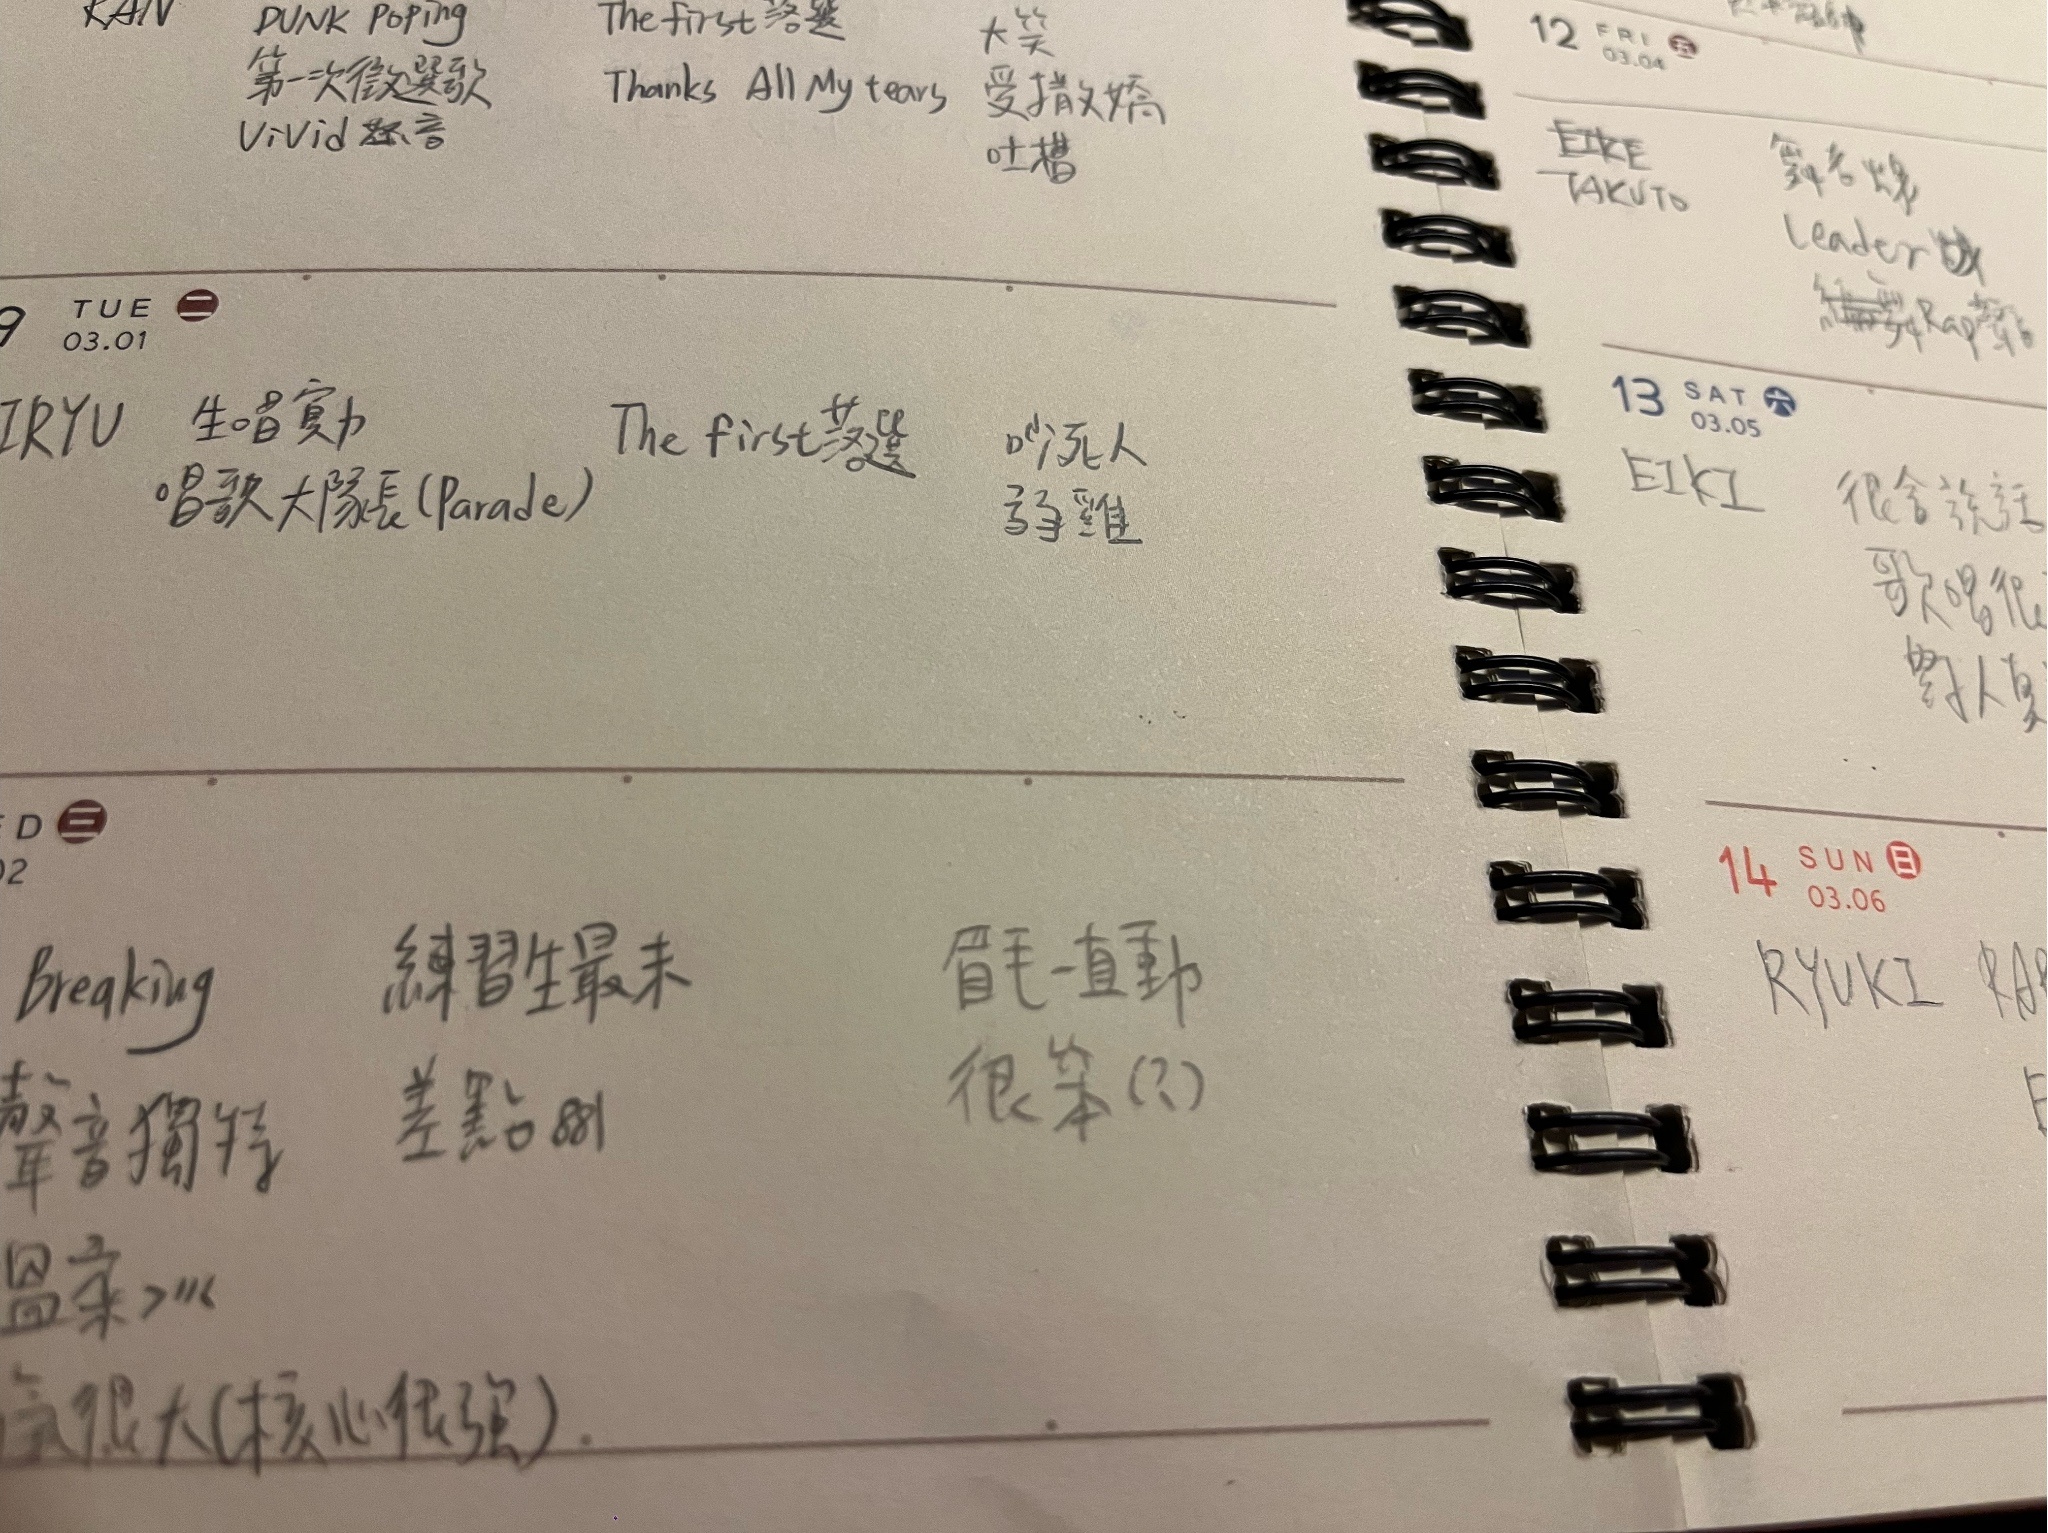 RAN PUNK Poping The first 落選 大笑
第一次徵選歌 Thanks All My tears 受撒嬌
ViVid 吐槽
TUE 二
03.01
IRYU 生唱實力 The first 落選 吵死人
唱歌大隊長(Parade) 弱雞
D 三
02
Breaking 練習生最末 眉毛一直動
聲音獨特 差點881 很笨(?)
溫柔
很大(核心很強)
12 FRI 五
03.04
EIKE
TAKUTO
Leader
Rap
13 SAT 六
03.05
EIKI 很會說話
歌唱很
對人真
14 SUN 日
03.06
RYUKI